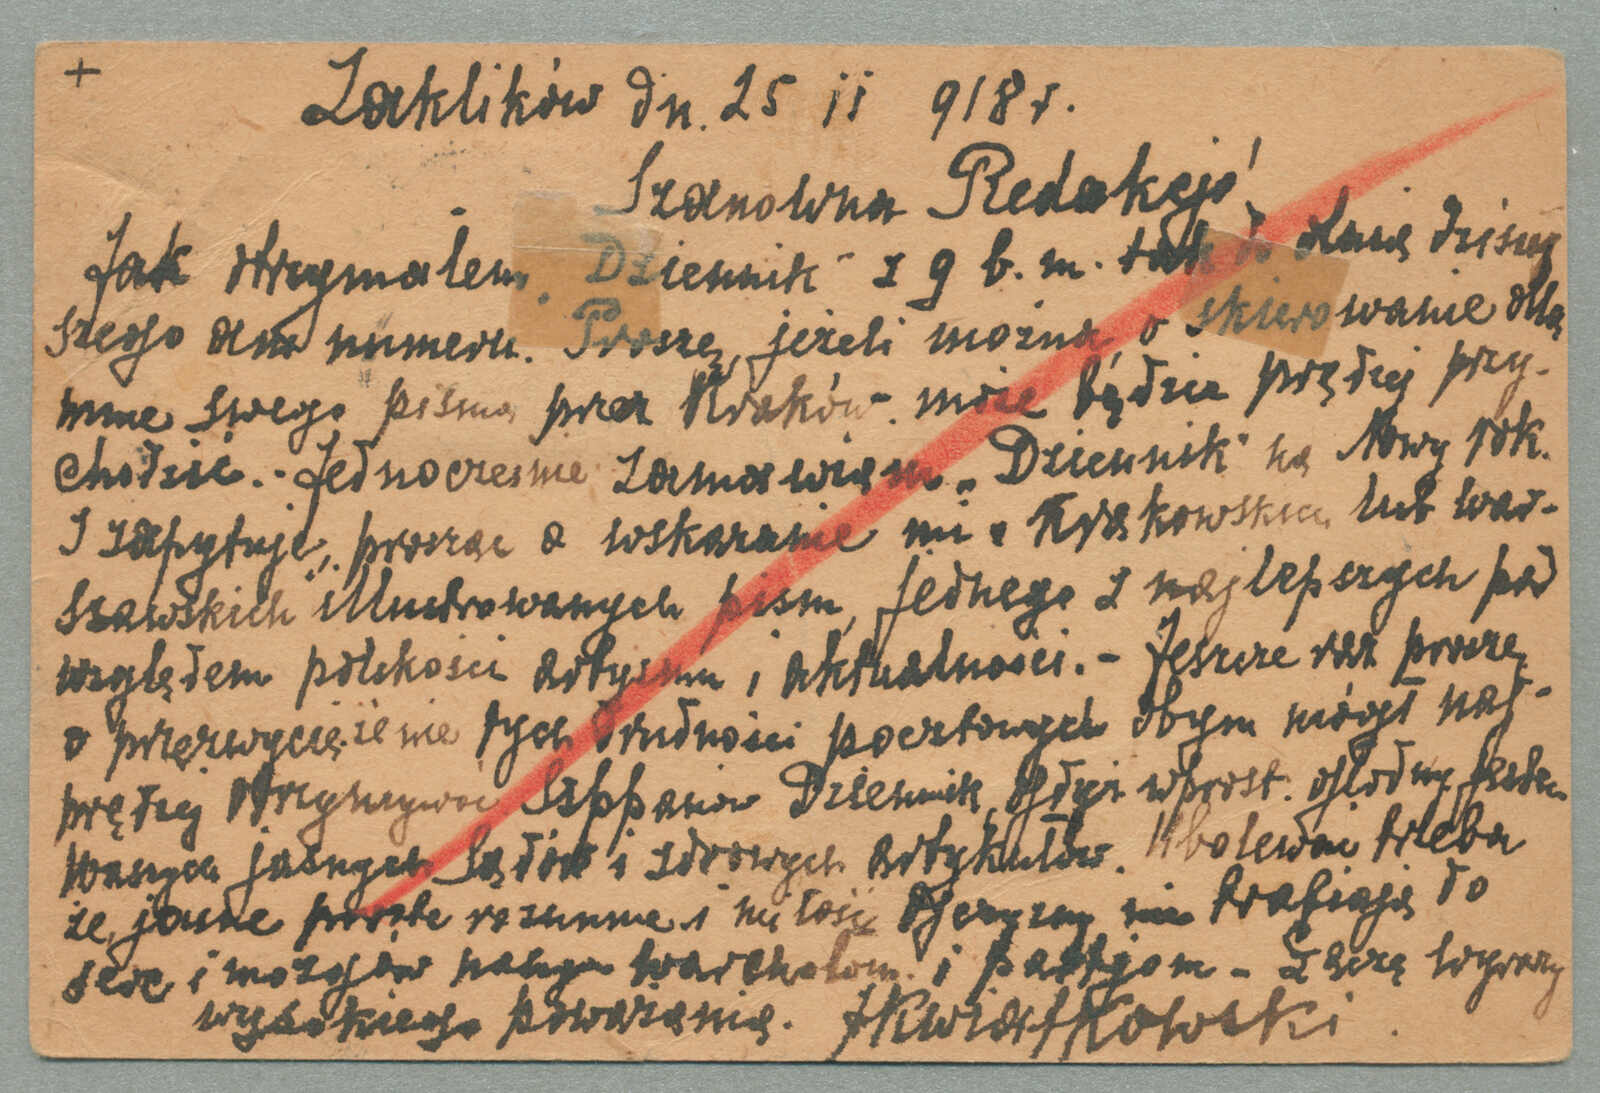 +
Zaklików dn. 25 ii 918 r.
Szanowna Redakcjo!
Jak otrzymałem „Dziennik" z 9 b. m. tak do dnia dzisiej
szego ani numeru. Proszę, jeżeli można, o skierowanie dla
mnie swego pisma przez Kraków. może będzie prędzej przy-
chodzić. - Jednocześnie zamawiam „Dziennik" na Nowy rok.
I zapytuję, prosząc o wskazanie mi z Krakowskich lub war-
szawskich illustrowanych pism, jednego z najlepszych pod
względem polskości artyzmu i aktualności. - Jeszcze raz proszę
o przezwyciężenie tych trudności pocztowych abym mógł naj-
prędzej otrzymywać Dziennik, gdyż wprost głodny jestem
Waszych jasnych sądów i zdrowych artykułów. Ubolewać trzeba
że, jasne proste rozumne i miłość Ojczyzny nie trafiają do
serc i mózgów naszym warchołom i partjom - Łączę wyrazy
wysokiego poważania. JKwiatkowski.